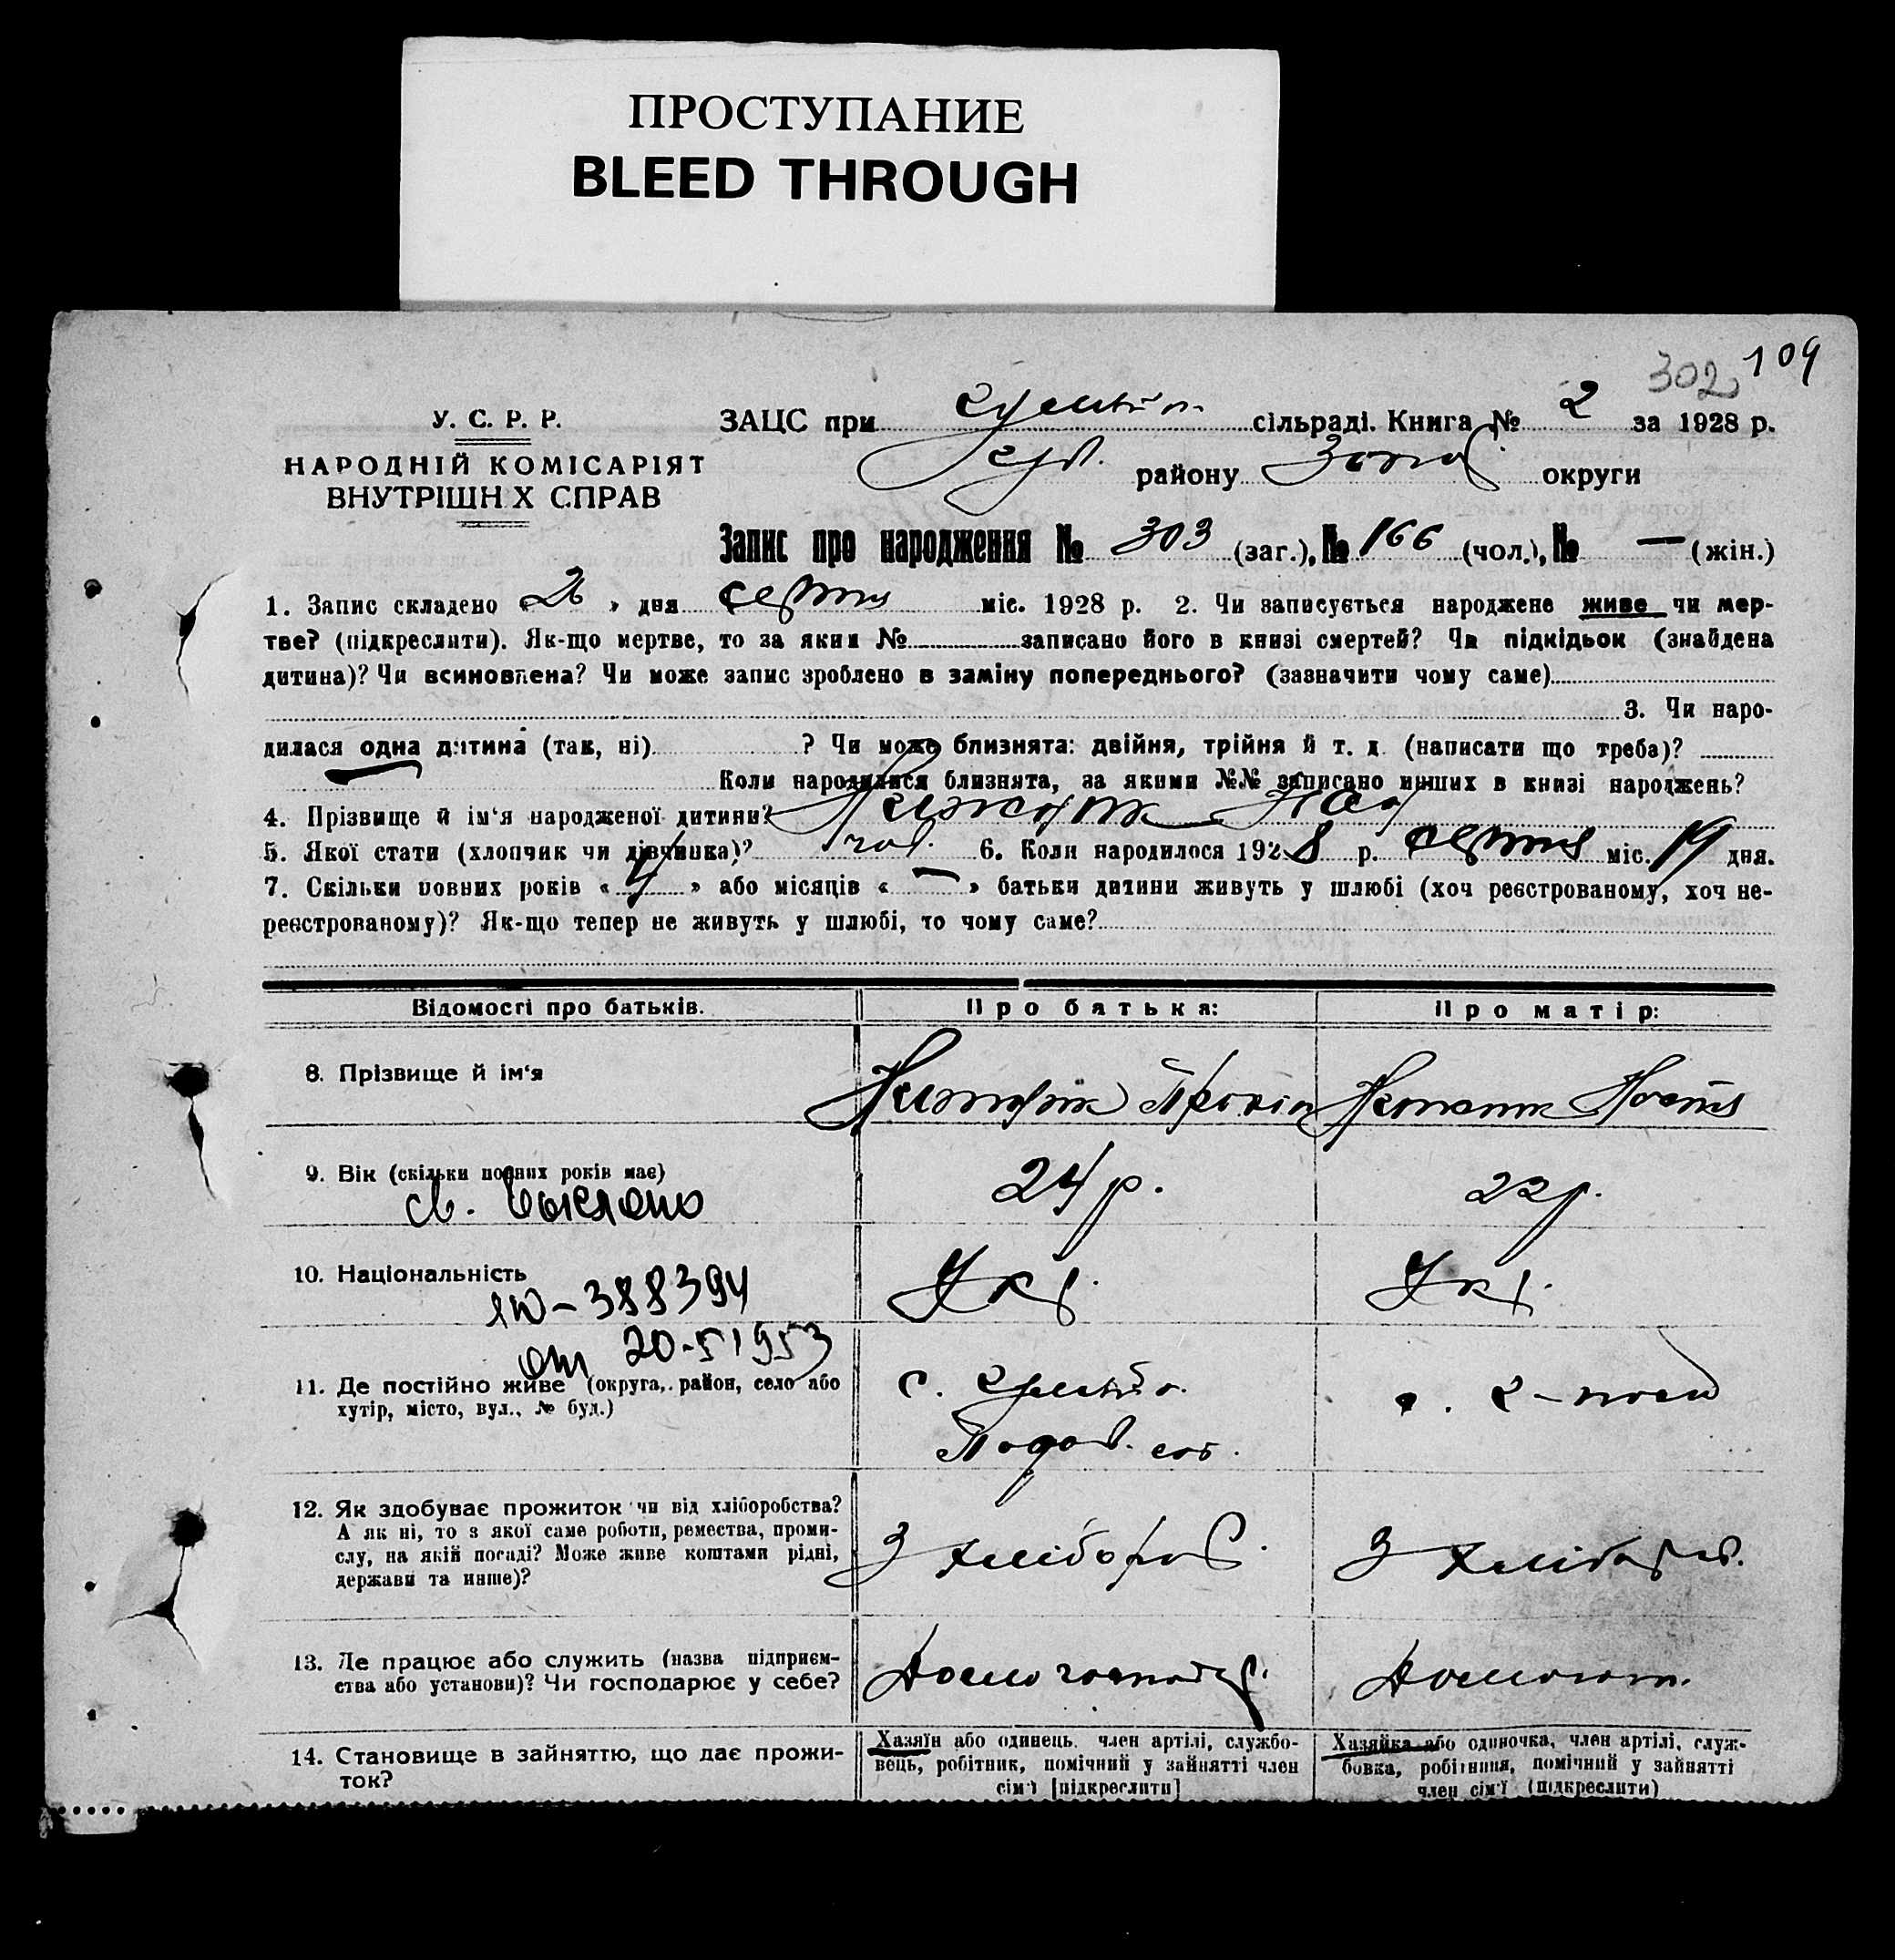 ПРОСТУПАНИЕ
BLEED THROUGH
302 109
У. С. Р. Р.
НАРОДНІЙ КОМІСАРІЯТ
ВНУТРІШН Х СПРАВ
ЗАЦС при сільраді. Книга № 2 за 1928 р.
району Золот округи
Запис про народження № 303 (заг.), № 166 (чол.), № — (жін.)
1. Запис складено « 26 » дня серпня міс. 1928 р. 2. Чи записується народжене живе чи мер-
тве? (підкреслити). Як-що мертве, то за яким № записано його в книзі смертей? Чи підкідьок (знайдена
дитина)? Чи всиновлена? Чи може запис зроблено в заміну попереднього? (зазначити чому саме)
3. Чи наро-
дилася одна дитина (так, ні) ? Чи може близнята: двійня, трійня й т. д. (написати що треба)?
Коли народилися близнята, за якими №№ записано инших в книзі народжень?
4. Прізвище й ім‘я народженої дитини?
5. Якої стати (хлопчик чи дівчинка)? чол. 6. Коли народилося 1928 р. серпня міс. 19 дня.
7. Скільки повних років « 4 » або місяців « — » батьки дитини живуть у шлюбі (хоч реєстрованому, хоч не-
реєстрованому)? Як-що тепер не живуть у шлюбі, то чому саме?
Відомості про батьків. Про батька: Про матір:
8. Прізвище й ім‘я
9. Вік (скільки повних років має) 24 р. 22 р.
св. выслано
10. Національність Укр. Укр.
яю-388394
от 20-5 1953
11. Де постійно живе (округа, район, село або
хутір, місто, вул., № буд.)
12. Як здобуває прожиток чи від хліборобства? З хлібороб. З хлібороб.
А як ні, то з якої саме роботи, ремества, проми-
слу, на якій посаді? Може живе коштами рідні,
держави та инше)?
13. Де працює або служить (назва підприєм-
ства або установи)? Чи господарює у себе? Домогосподар. Домогосп.
14. Становище в зайняттю, що дає прожи-
ток?
Хазяїн або одинець, член артілі, службо-
вець, робітник, помічний у зайнятті член
сім‘ї [підкреслити]
Хазяйка або одиночка, член артілі, служ-
бовка, робітниця, помічний у зайнятті
член сім‘ї (підкреслити)